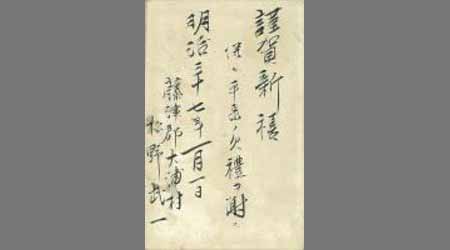 謹賀新禧
併テ平素ノ欠禮ヲ謝ス
明治三十七年一月一日
藤津郡大浦村
松野武一